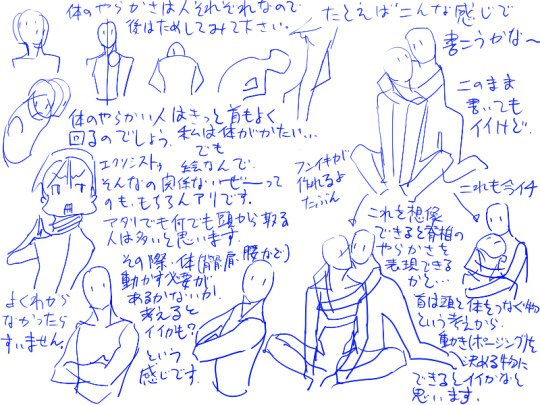 体のやらかさは人それぞれなので
後はためしてみて下さい。
たとえばこんな感じで
書こうかな〜
このまま
書いても
イイけど。
体のやらかい人はきっと首もよく
回るのでしょう。私は体がかたい…
でも
エクソシスト
絵なんで
そんなの関係ないぜーって
のも、もちろんアリです。
フンイキが
作れるよ
たぶん
これも今イチ
アタリでも何でも頭から取る
人は多いと思います。
その際、体(肩、腰など)
動かす必要が
あるかないか
考えると
イイかも?
という
感じです。
これを想像
できると背格の
やらかさを
表現できる
かと…
首は頭と体をつなぐ物
という考えから
動き(ポージング)を
決める物に
できるとイイかなと
思います。
よくわから
なかったら
すいません。